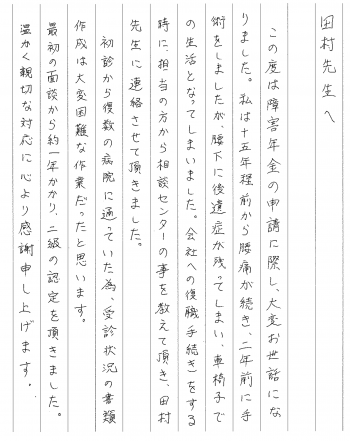 田村先生へ
この度は障害年金の申請に際し、大変お世話にな
りました。私は十五年程前から腰痛が続き、二年前に手
術をしましたが、腰下に後遺症が残ってしまい、車椅子で
の生活となってしまいました。会社への復職手続きをする
時に、担当の方から相談センターの事を教えて頂き、田村
先生に連絡させて頂きました。
初診から複数の病院に通っていた為、受診状況の書類
作成は大変困難な作業だったと思います。
最初の面談から約一年かかり、二級の認定を頂きました。
温かく親切な対応に心より感謝申し上げます。